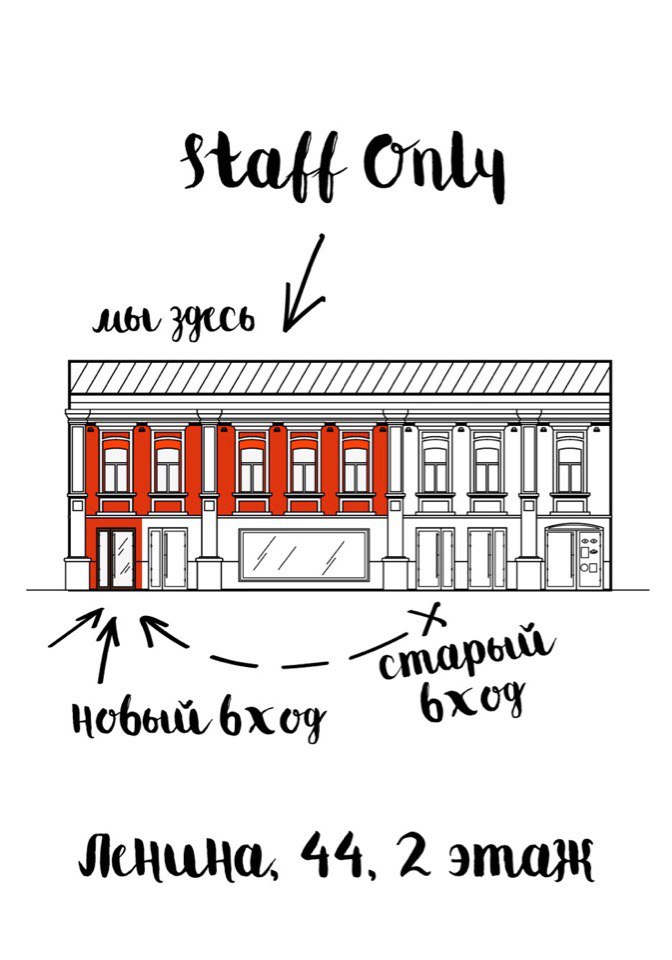 Staff Only
мы здесь
старый
вход
новый вход
Ленина, 44, 2 этаж